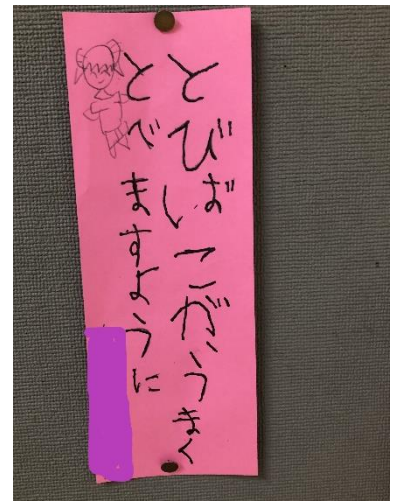 とびばこがうまく
とでますように